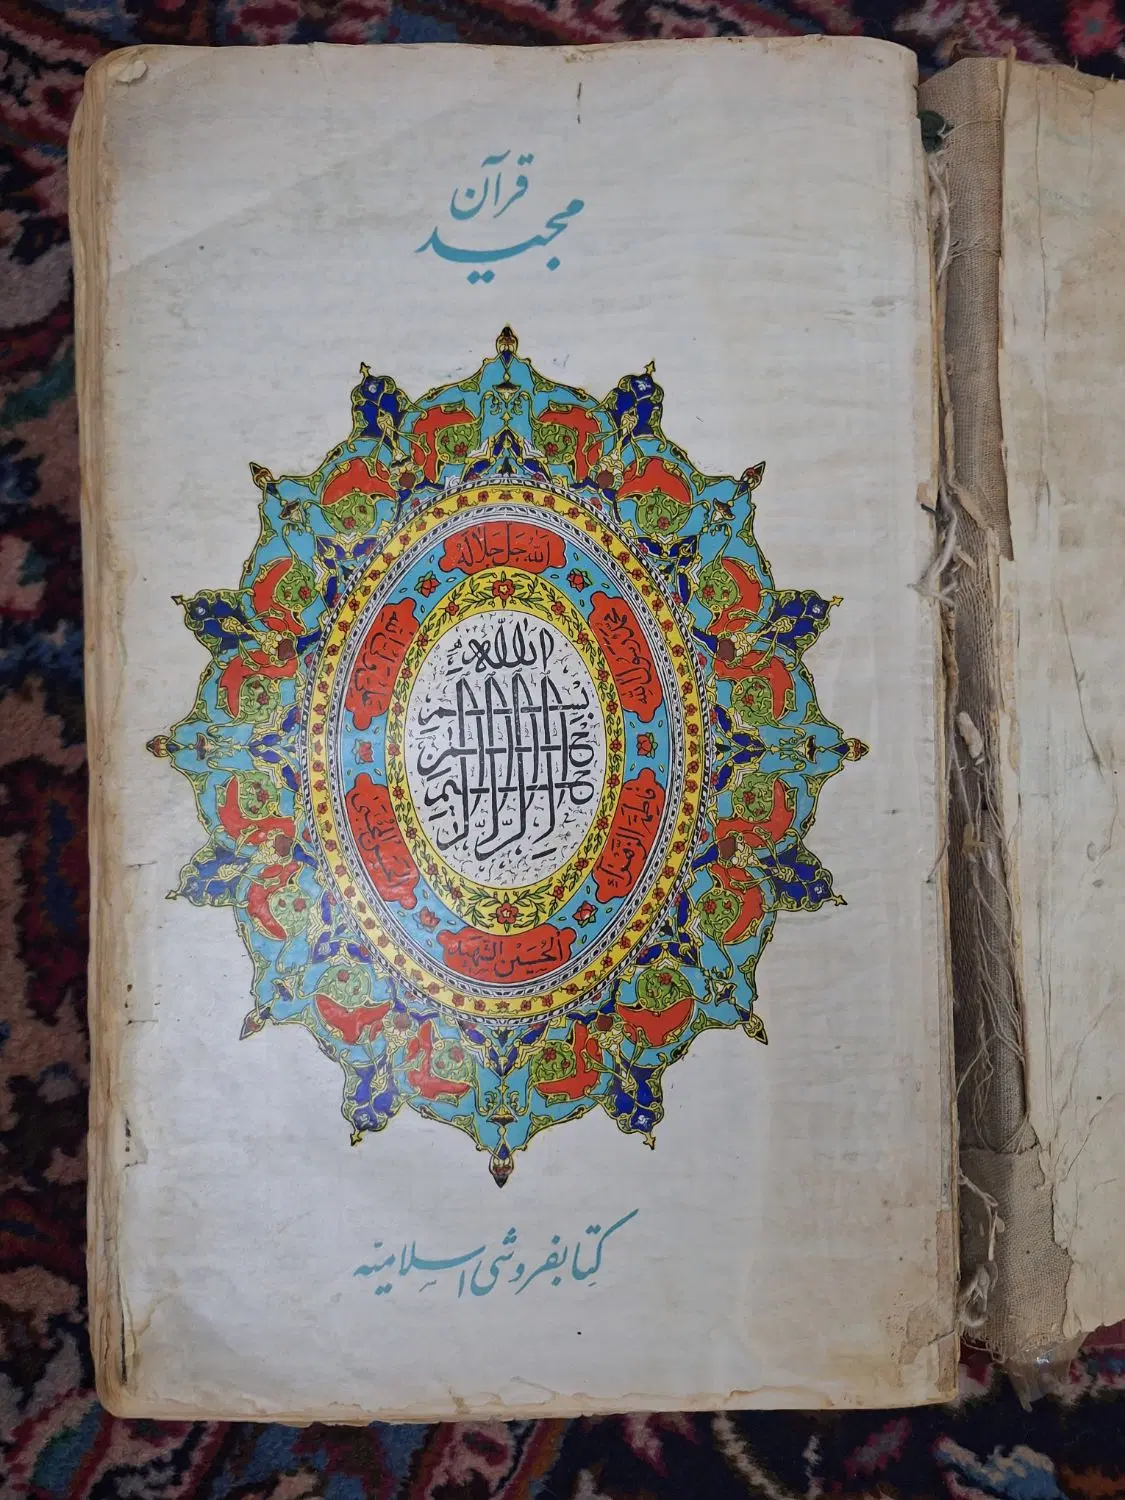 قرآن
مجید
الله جل جلاله
محمد رسول الله
فاطمة الزهراء
الحسین الشهید
الحسن المجتبی
بسم الله الرحمن الرحیم
کتابفروشی اسلامیه